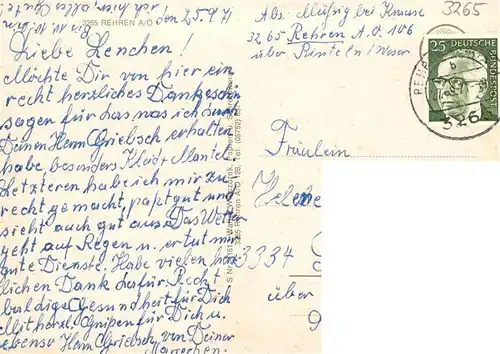 3265 REHREN A/O
den 25.9.71
Liebe Lenchen!
Möchte Dir von hier ein
recht herzliches Dankeschön
sagen für das was ich durch
Deinen Herrn Griebsch erhalten
habe, besonders Kleid u. Mantel.
Letzteren habe ich mir zu
recht gemacht, paßt gut und
sieht auch gut aus. Das Wetter
geht auf Regen u. er tut mir
gute Dienste. Habe vielen herz
lichen Dank dafür. Recht
baldige Gesundheit für Dich
Mit herzl. Grüßen für Dich u.
ebenso Herrn Griebsch von Deiner
Abs. Müßig bei Krause
3265 Rehren A.O. 106
über Rinteln/Weser
3265
25
DEUTSCHE
BUNDESPOST
326
Fräulein
3334
über